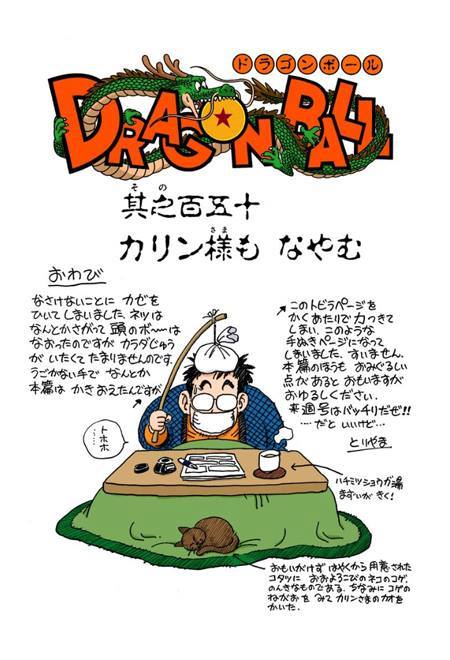 ドラゴンボール
DRAGON BALL
其之百五十
その
カリン様も なやむ
さま
おわび
なさけないことに カゼを
ひいてしまいました。ネツは
なんとかさがって 頭のボ〜は
なおったのですが カラダじゅう
が いたくて たまりませんのです。
うごかない手で なんとか
本篇は かきおえたんですが
このトビラページを
かくあたりで 力つきて
しまい、このような
手ぬきページになって
しまいました。すいません。
本篇のほうも おみぐるしい
点があると おもいますが
おゆるしください。
来週号はバッチリだぜ!!
……だと いいけど…
とりやま
トホホ
……
ハチミツショウガ湯
まずいが きく!
おもいがけず はやくから 用意された
コタツに おおよろこびの ネコのコゲ。
のんきなものである。ちなみに コゲの
ねがおを みて カリンさまのカオを
かいた。